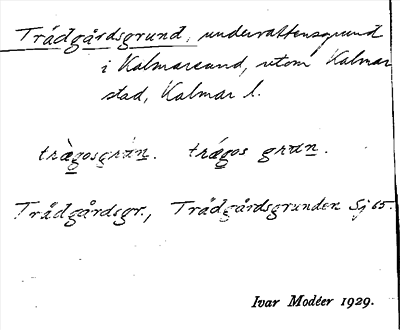 Trädgårdsgrund, undervattensgrund
i Kalmarsund, utom Kalmar
stad, Kalmar l.
trägosgran. trágos gran.
Trädgårdsgr., Trädgårdsgrunden Sj 65.
Ivar Modéer 1929.